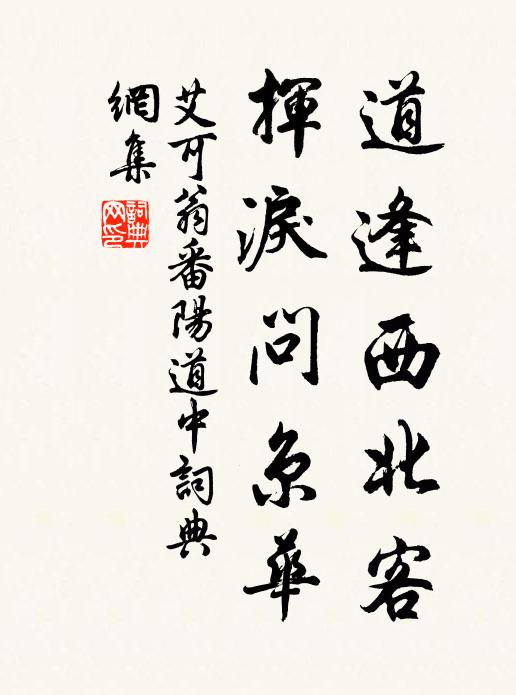 道逢西北客
揮淚問京華
艾可翁番陽道中詞典
網集
詞典網印